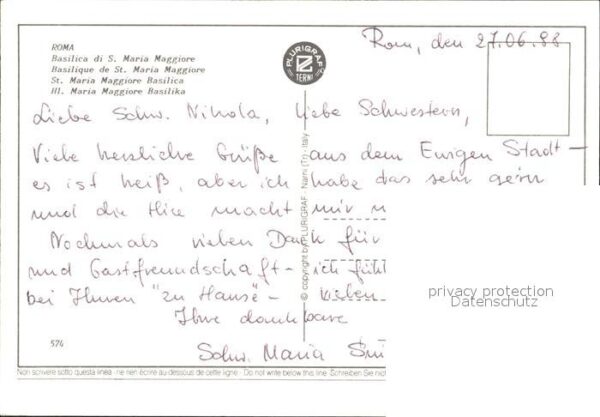 ROMA
Basilica di S. Maria Maggiore
Basilique de St. Maria Maggiore
St. Maria Maggiore Basilica
Hl. Maria Maggiore Basilika
PLURIGRAF
TERNI
Rom, den 27.06.88
Liebe Schw. Nikola, liebe Schwestern,
Viele herzliche Grüße aus dem Ewigen Stadt –
es ist heiß, aber ich habe das sehr gern
und die Hice macht mir
Nochmals vielen Dank für
und Gastfreundschaft – ich
bei Ihnen "zu Hause" –
Ihre dankbare
Schw. Maria
© copyright by PLURIGRAF - Narni (Tr) - Italy
privacy protection
Datenschutz
574
Non scrivere sotto questa linea - ne rien écrire au-dessous de cette ligne - Do not write below this line. Schreiben Sie nicht